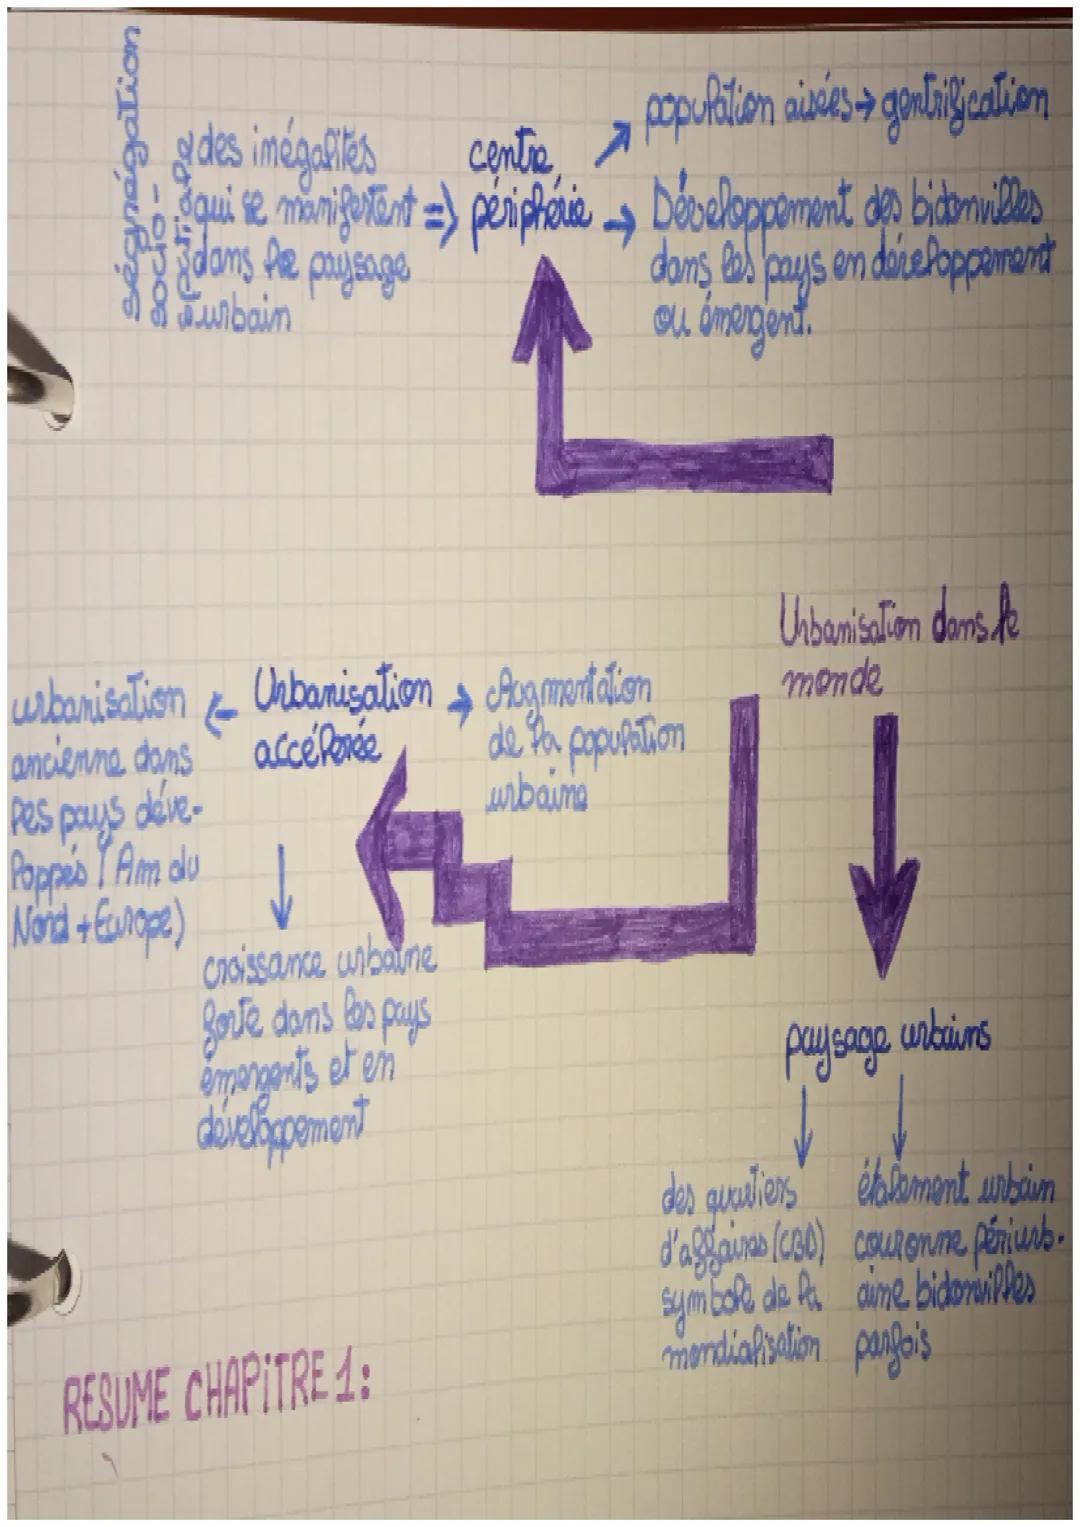 ségrégation
socio-
spatiale
des inégalités
qui se manifestent =>
dans le paysage
urbain
centre
périphérie
population aisées → gentrification
Développement des bidonvilles
dans les pays en développement
ou émergent.
Urbanisation dans le
monde
Urbanisation
accélérée
urbanisation
ancienne dans
les pays déve-
loppés (Am du
Nord + Europe)
Augmentation
de la population
urbaine
croissance urbaine
forte dans les pays
émergents et en
développement
paysage urbains
des quartiers
d'affaires (CBD)
symbole de la
mondialisation
étalement urbain
couronne périurb-
aine bidonvilles
parfois
RESUME CHAPiTRE 1: